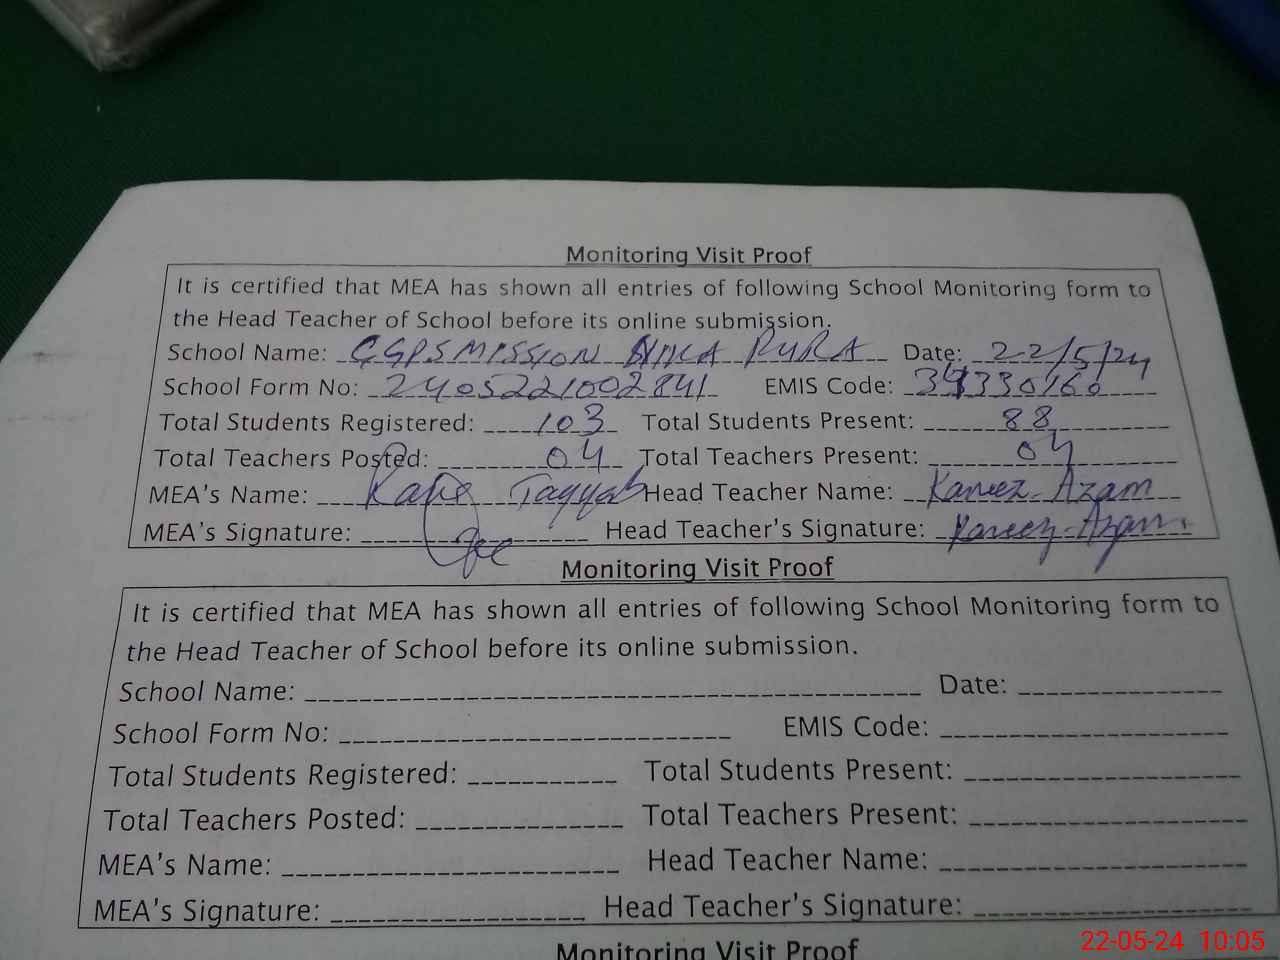 Monitoring Visit Proof
It is certified that MEA has shown all entries of following School Monitoring form to
the Head Teacher of School before its online submission.
School Name: CGPS MISSION PURA Date: 22/5/24
School Form No: 2405221002841 EMIS Code:
Total Students Registered: 103 Total Students Present: 88
Total Teachers Posted: 04 Total Teachers Present: 04
MEA's Name: Tayyab Head Teacher Name: Kaneez Azam
MEA's Signature: Head Teacher's Signature: Kaneez Azam
Monitoring Visit Proof
It is certified that MEA has shown all entries of following School Monitoring form to
the Head Teacher of School before its online submission.
School Name: Date:
School Form No: EMIS Code:
Total Students Registered: Total Students Present:
Total Teachers Posted: Total Teachers Present:
MEA's Name: Head Teacher Name:
MEA's Signature: Head Teacher's Signature:
Monitoring Visit Proof
22-05-24 10:05